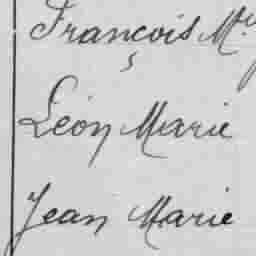 François M.
Léon Marie
Jean Marie